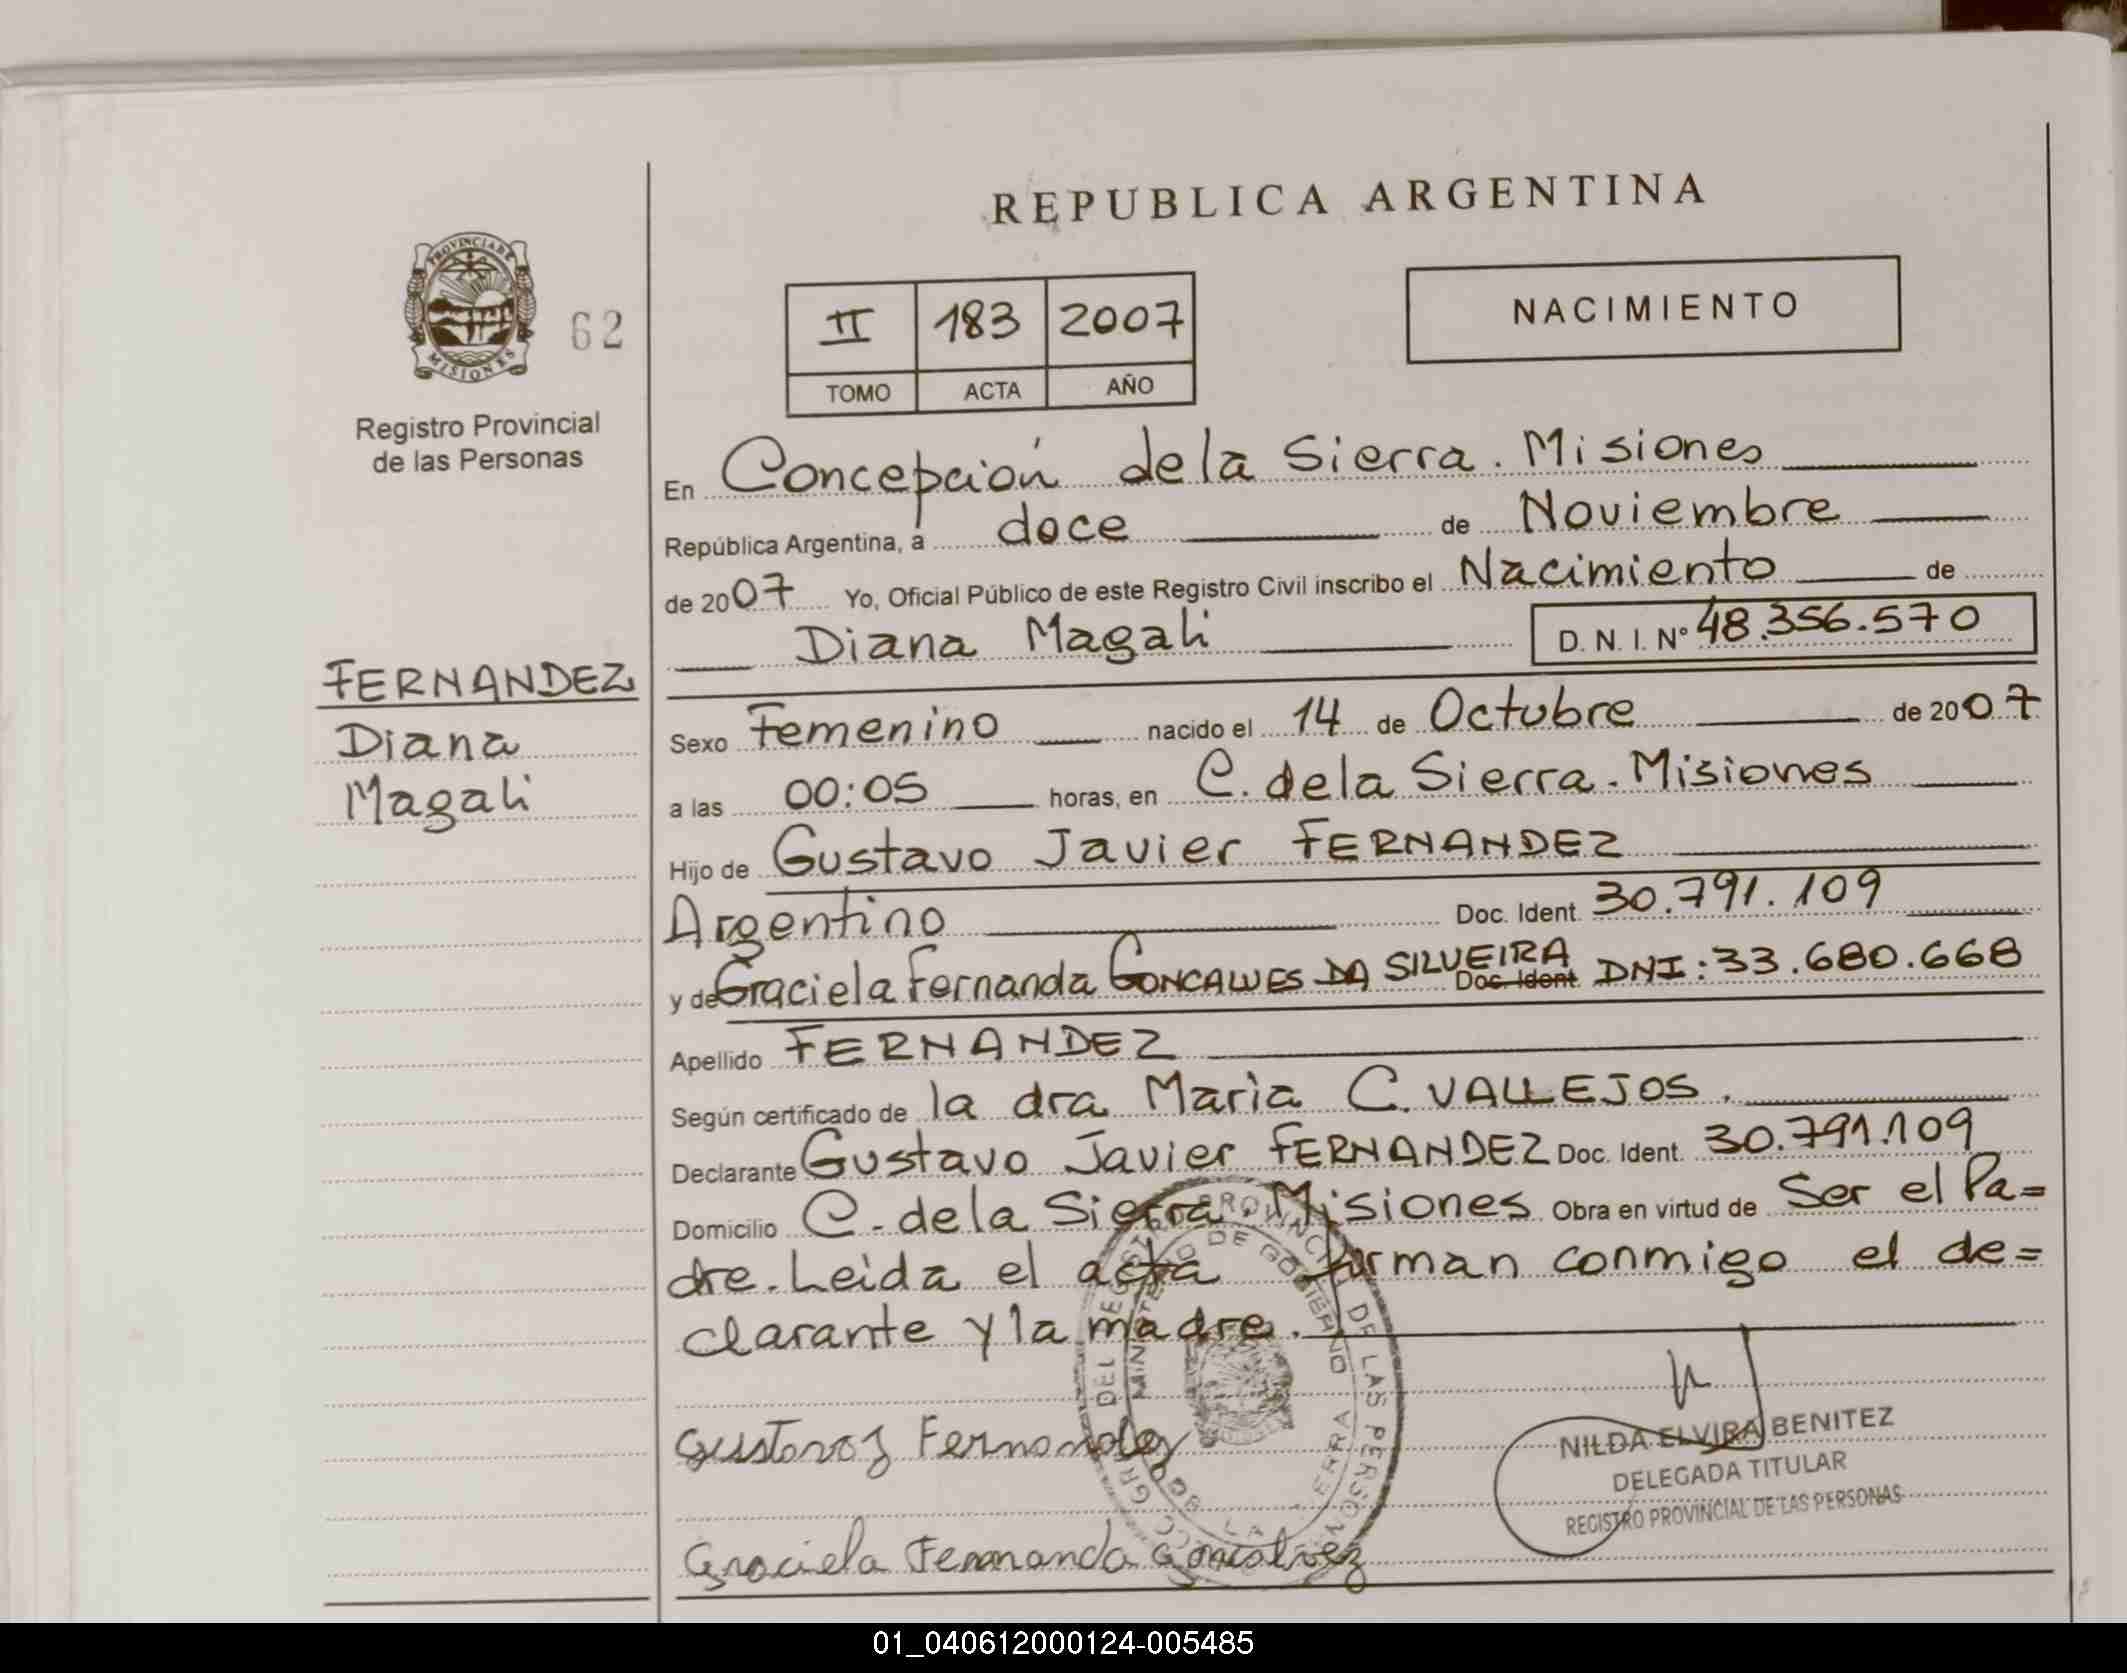 REPUBLICA ARGENTINA
PROVINCIA DE
MISIONES
62
Registro Provincial
de las Personas
II 183 2007
TOMO ACTA AÑO
NACIMIENTO
En Concepción de la Sierra. Misiones
República Argentina, a doce de Noviembre
de 2007 Yo, Oficial Público de este Registro Civil inscribo el Nacimiento de
Diana Magali D. N. I. Nº 48.356.570
FERNANDEZ
Diana
Magali
Sexo Femenino nacido el 14 de Octubre de 2007
a las 00:05 horas, en C. de la Sierra. Misiones
Hijo de Gustavo Javier FERNANDEZ
Argentino Doc. Ident. 30.791.109
y de Graciela Fernanda GONCALVES DA SILVEIRA Doc. Ident. DNI: 33.680.668
Apellido FERNANDEZ
Según certificado de la dra Maria C. VALLEJOS.
Declarante Gustavo Javier FERNANDEZ Doc. Ident. 30.791.109
Domicilio C. de la Sierra. Misiones Obra en virtud de Ser el Pa=
dre. Leida el acta firman conmigo el de=
clarante y la madre.
Gustavo J Fernandez
Graciela Fernanda Goncalvez
MINISTERIO DE GOBIERNO
DE LAS PERSONAS
NILDA ELVIRA BENITEZ
DELEGADA TITULAR
REGISTRO PROVINCIAL DE LAS PERSONAS
01_040612000124-005485